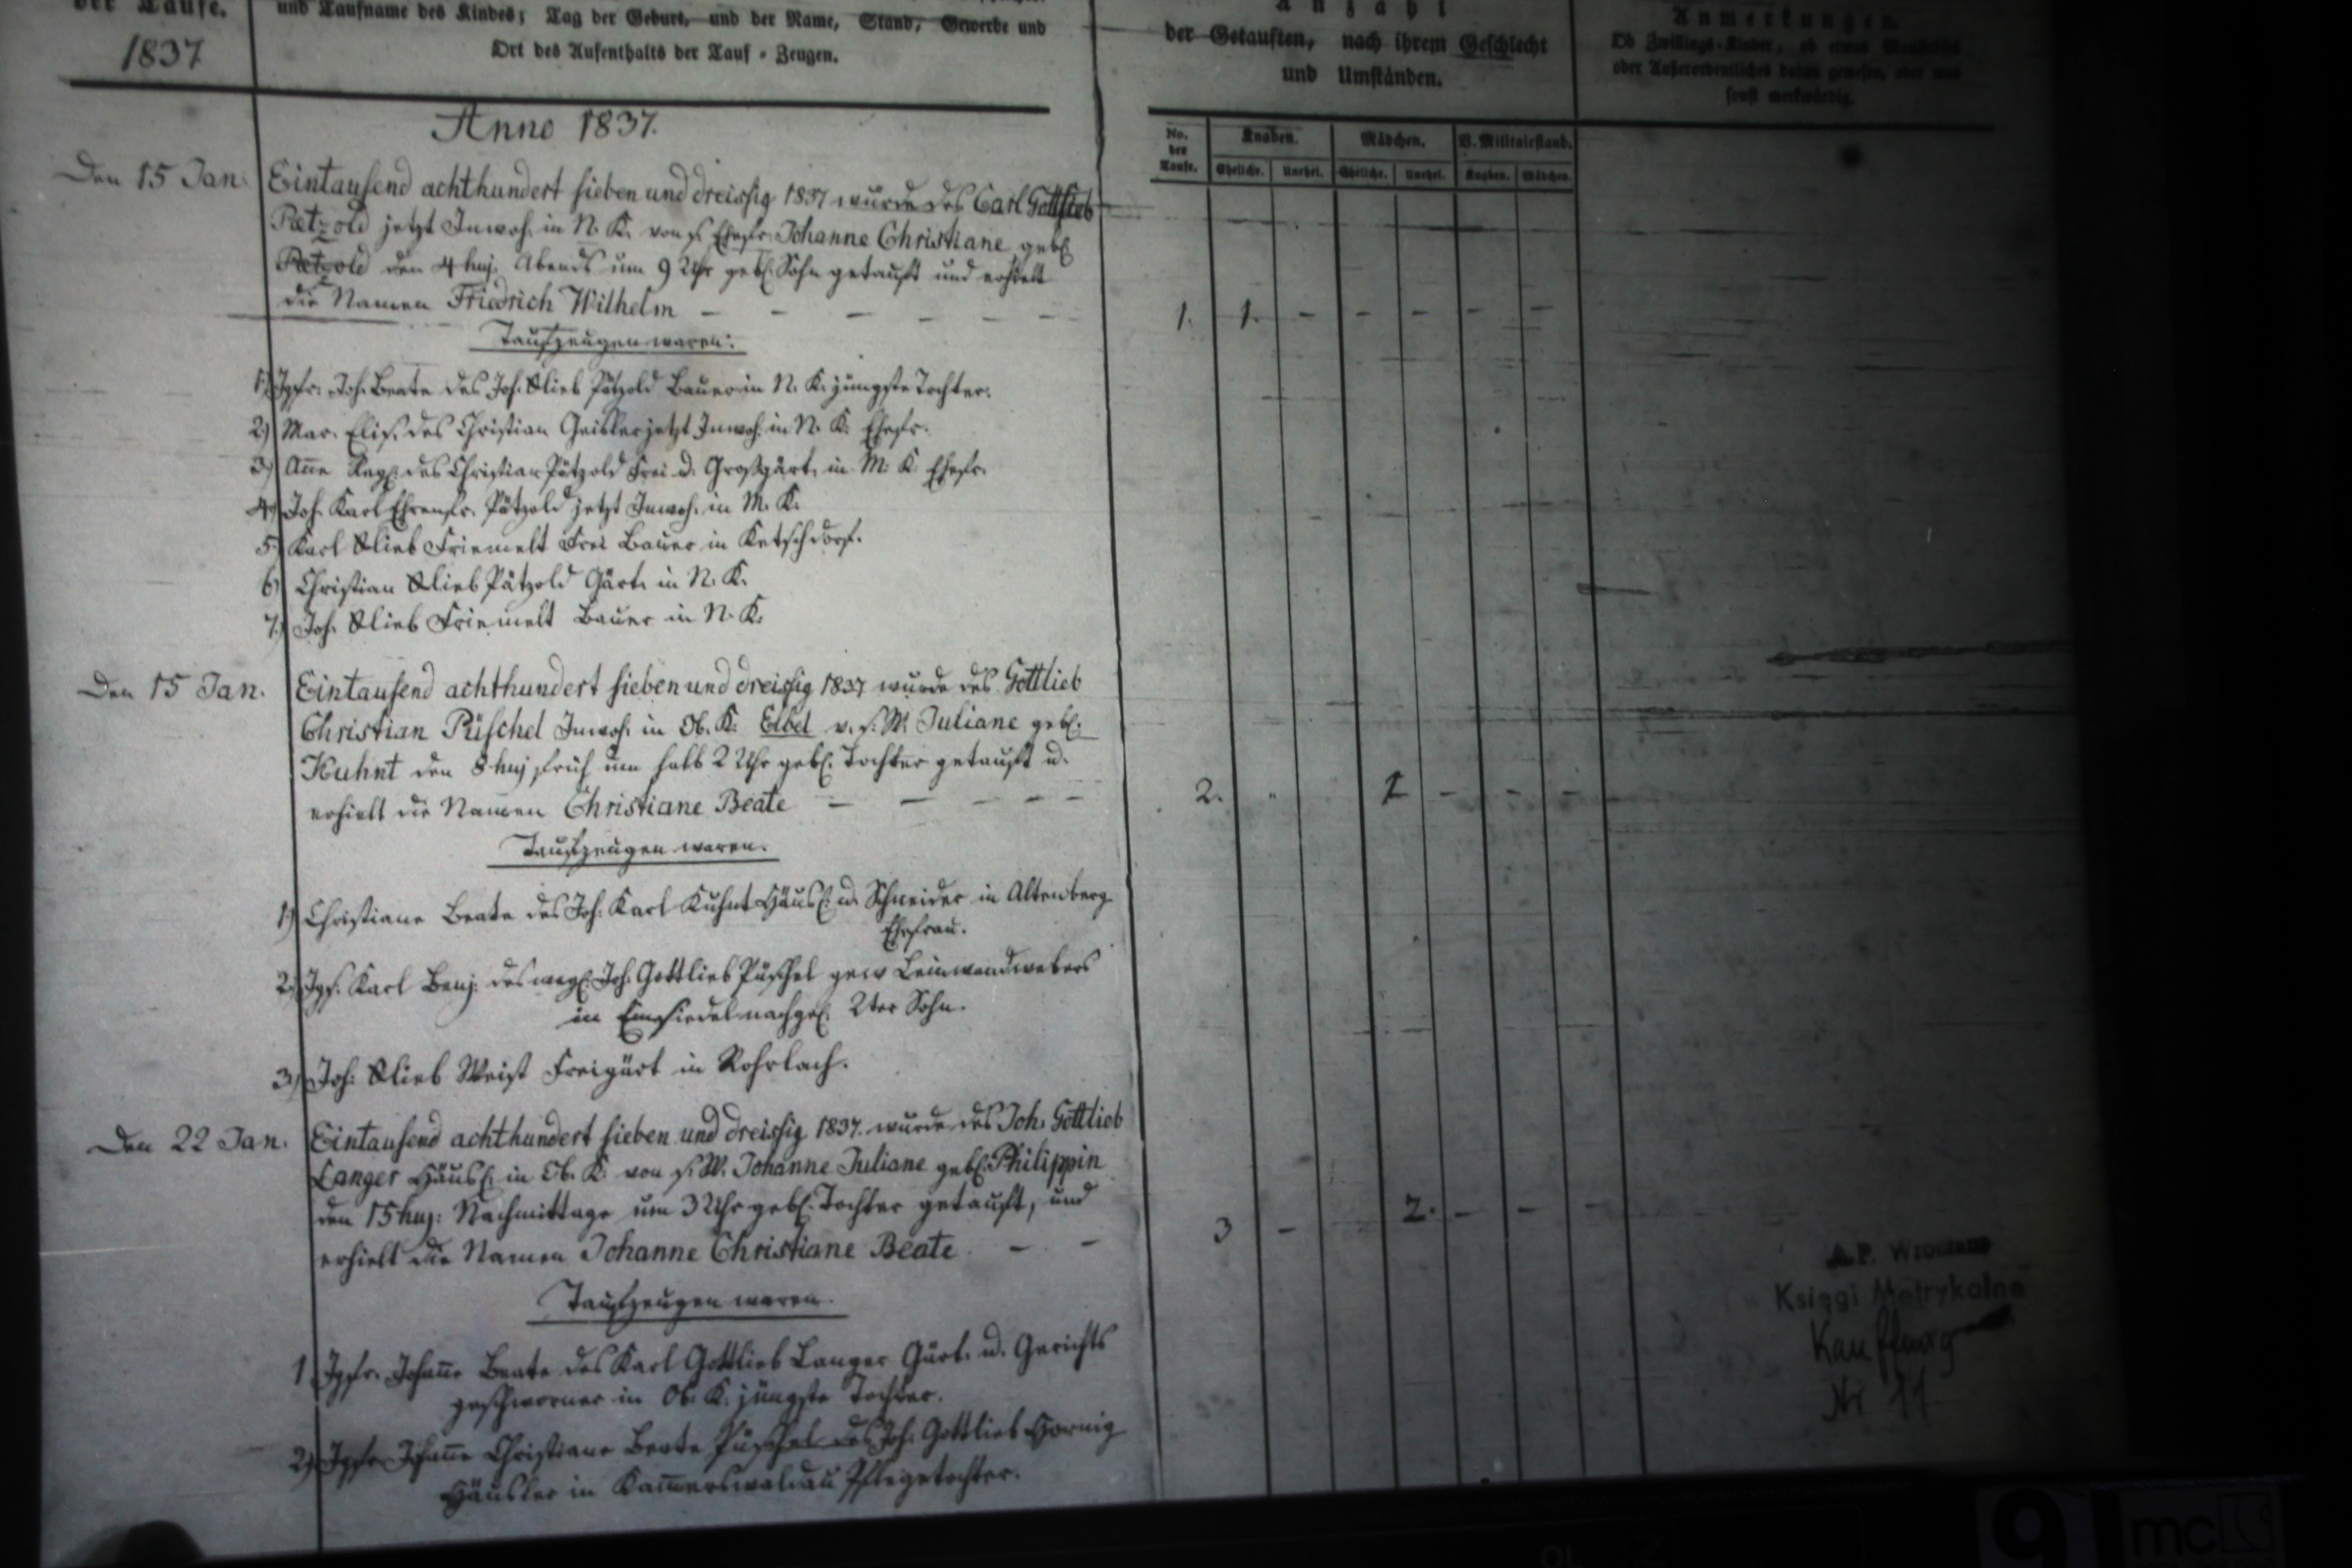 der Taufe.
1837
und Taufname des Kindes; Tag der Geburt, und der Name, Stand, Gewerbe und
Ort des Aufenthalts der Tauf-Zeugen.
Anzahl
der Getauften, nach ihrem Geschlecht
und Umständen.
Anmerkungen.
Ob Zwillings-Kinder, ob etwas
oder Außerordentliches daran gewesen, oder was
sonst merkwürdig.
No. der Taufe.
Knaben.
Mädchen.
B. Militairstand.
Eheliche.
Unehel.
Eheliche.
Unehel.
Knaben.
Mädchen.
Anno 1837.
Den 15 Jan.
Eintausend achthundert sieben und dreissig 1837 wurde des Carl Gottlieb
Pætzold jetzt Inwoh. in N. K. von s. Ehefr. Johanne Christiane geb.
Pætzold den 4 huj. Abends um 9 Uhr geb. Sohn getauft und erhielt
die Namen Friedrich Wilhelm – – – – – –
1. 1. – – – – –
Taufzeugen waren:
1) Jgfr. Joh. Beate des Joh. Glieb Pätzold Bauer in N. K. jüngste Tochter.
2) Mar. Elis. des Christian Geisler jetzt Inwoh. in N. K. Ehefr.
3) Añe Ros. des Christian Pätzold Frei u. Großgärt. in M. K. Ehefr.
4) Joh. Karl Ehrenfr. Pätzold jetzt Inwoh. in M. K.
5) Karl Glieb Friemelt Frei Bauer in Ketschdorf.
6) Christian Glieb Pätzold Gärt. in N. K.
7) Joh. Glieb Friemelt Bauer in N. K.
Den 15 Jan.
Eintausend achthundert sieben und dreissig 1837 wurde des Gottlieb
Christian Püschel Inwoh. in Ob. K. Elbel v. s. W. Juliane geb.
Kuhnt den 8 huj früh um halb 2 Uhr geb. Tochter getauft u.
erhielt die Namen Christiane Beate – – – – –
2. " 1 – – –
Taufzeugen waren.
1) Christiane Beate des Joh. Karl Kuhnt Häusl. u. Schneider in Altenberg
Ehefrau.
2) Jgs. Karl Benj. des weyl. Joh. Gottlieb Püschel gew Leinwandwebers
in Einsiedel nachgel. 2ter Sohn.
3) Joh. Glieb Weist Freigärt in Rohrlach.
Den 22 Jan.
Eintausend achthundert sieben und dreissig 1837. wurde des Joh. Gottlieb
Langer Häusl. in Ob. K. von s. W. Johanne Juliane geb. Philippin
den 15 huj: Nachmittags um 3 Uhr geb. Tochter getauft, und
erhielt die Namen Johanne Christiane Beate. – –
3 – 2. – – –
Taufzeugen waren.
1 Jgfr. Johañe Beate des Karl Gottlieb Langer Gärt. u. Gerichts
geschworner in Ob. K. jüngste Tochter.
2) Jgfr Johañe Christiane Beate Püschel des Joh. Gottlieb Hornig
Häusler in Kam̃erswaldau Pflegetochter.
A.P. Wrocław
Księgi Metrykalne
Kauffung
Nr 11
9
mc